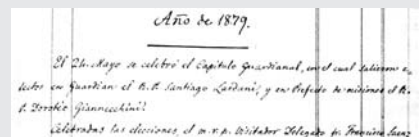 Año de 1879.
El 24 Mayo se celebró el Capítulo Guardianal, en el cual salieron e-
lectos en Guardian el R. P. Santiago Lardani, y en Prefecto de misiones el R.
P. Doroteo Giannecchini.
Celebradas las elecciones, el m. r. p. Visitador Delegado fr. Francisco